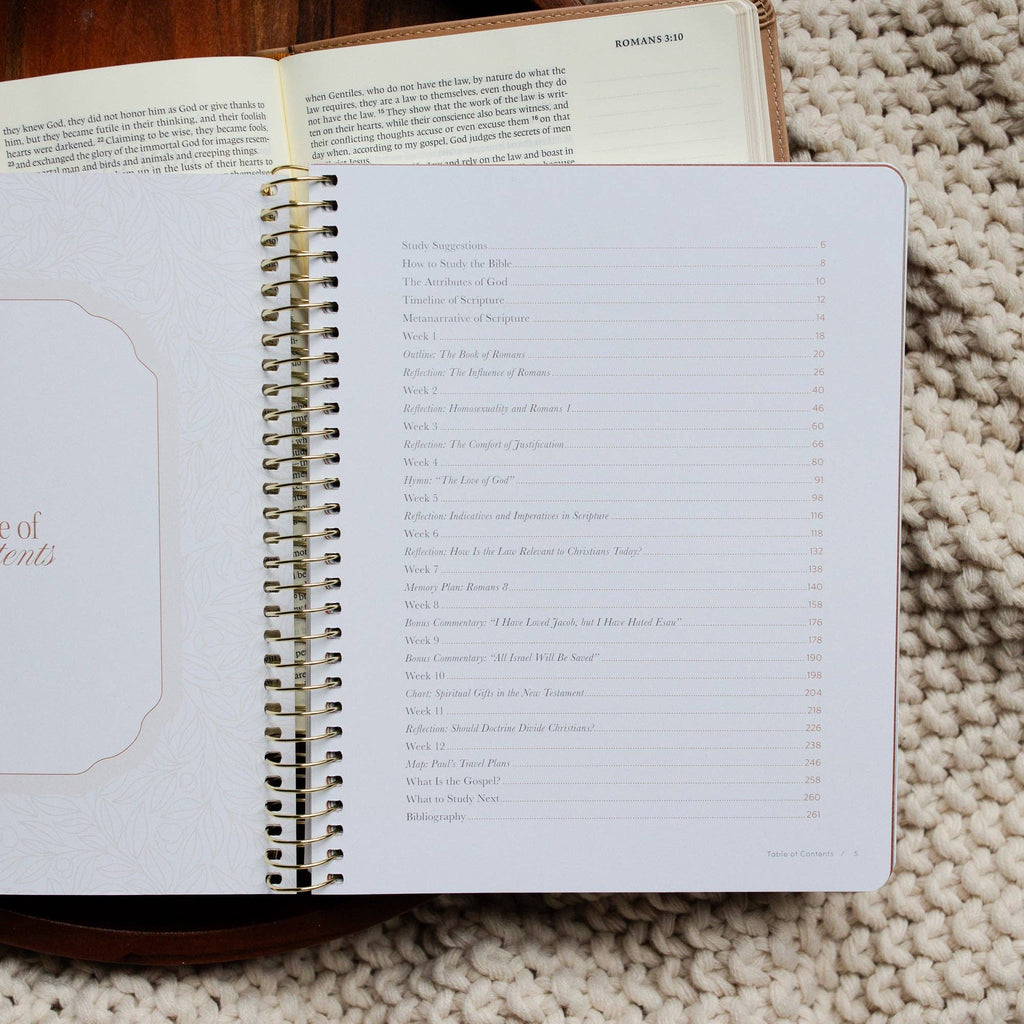 ROMANS 3:10
they knew God, they did not honor him as God or give thanks to
him, but they became futile in their thinking, and their foolish
hearts were darkened. 22 Claiming to be wise, they became fools,
23 and exchanged the glory of the immortal God for images resem-
mortal man and birds and animals and creeping things.
up in the lusts of their hearts to
when Gentiles, who do not have the law, by nature do what the
law requires, they are a law to themselves, even though they do
not have the law. 15 They show that the work of the law is writ-
ten on their hearts, while their conscience also bears witness, and
their conflicting thoughts accuse or even excuse them 16 on that
day when, according to my gospel, God judges the secrets of men
Jesus.
law and rely on the law and boast in
e of
tents
Study Suggestions 6
How to Study the Bible 8
The Attributes of God 10
Timeline of Scripture 12
Metanarrative of Scripture 14
Week 1 18
Outline: The Book of Romans 20
Reflection: The Influence of Romans 26
Week 2 40
Reflection: Homosexuality and Romans 1 46
Week 3 60
Reflection: The Comfort of Justification 66
Week 4 80
Hymn: “The Love of God” 91
Week 5 98
Reflection: Indicatives and Imperatives in Scripture 116
Week 6 118
Reflection: How Is the Law Relevant to Christians Today? 132
Week 7 138
Memory Plan: Romans 8 140
Week 8 158
Bonus Commentary: “I Have Loved Jacob, but I Have Hated Esau” 176
Week 9 178
Bonus Commentary: “All Israel Will Be Saved” 190
Week 10 198
Chart: Spiritual Gifts in the New Testament 204
Week 11 218
Reflection: Should Doctrine Divide Christians? 226
Week 12 238
Map: Paul’s Travel Plans 246
What Is the Gospel? 258
What to Study Next 260
Bibliography 261
Table of Contents / 5